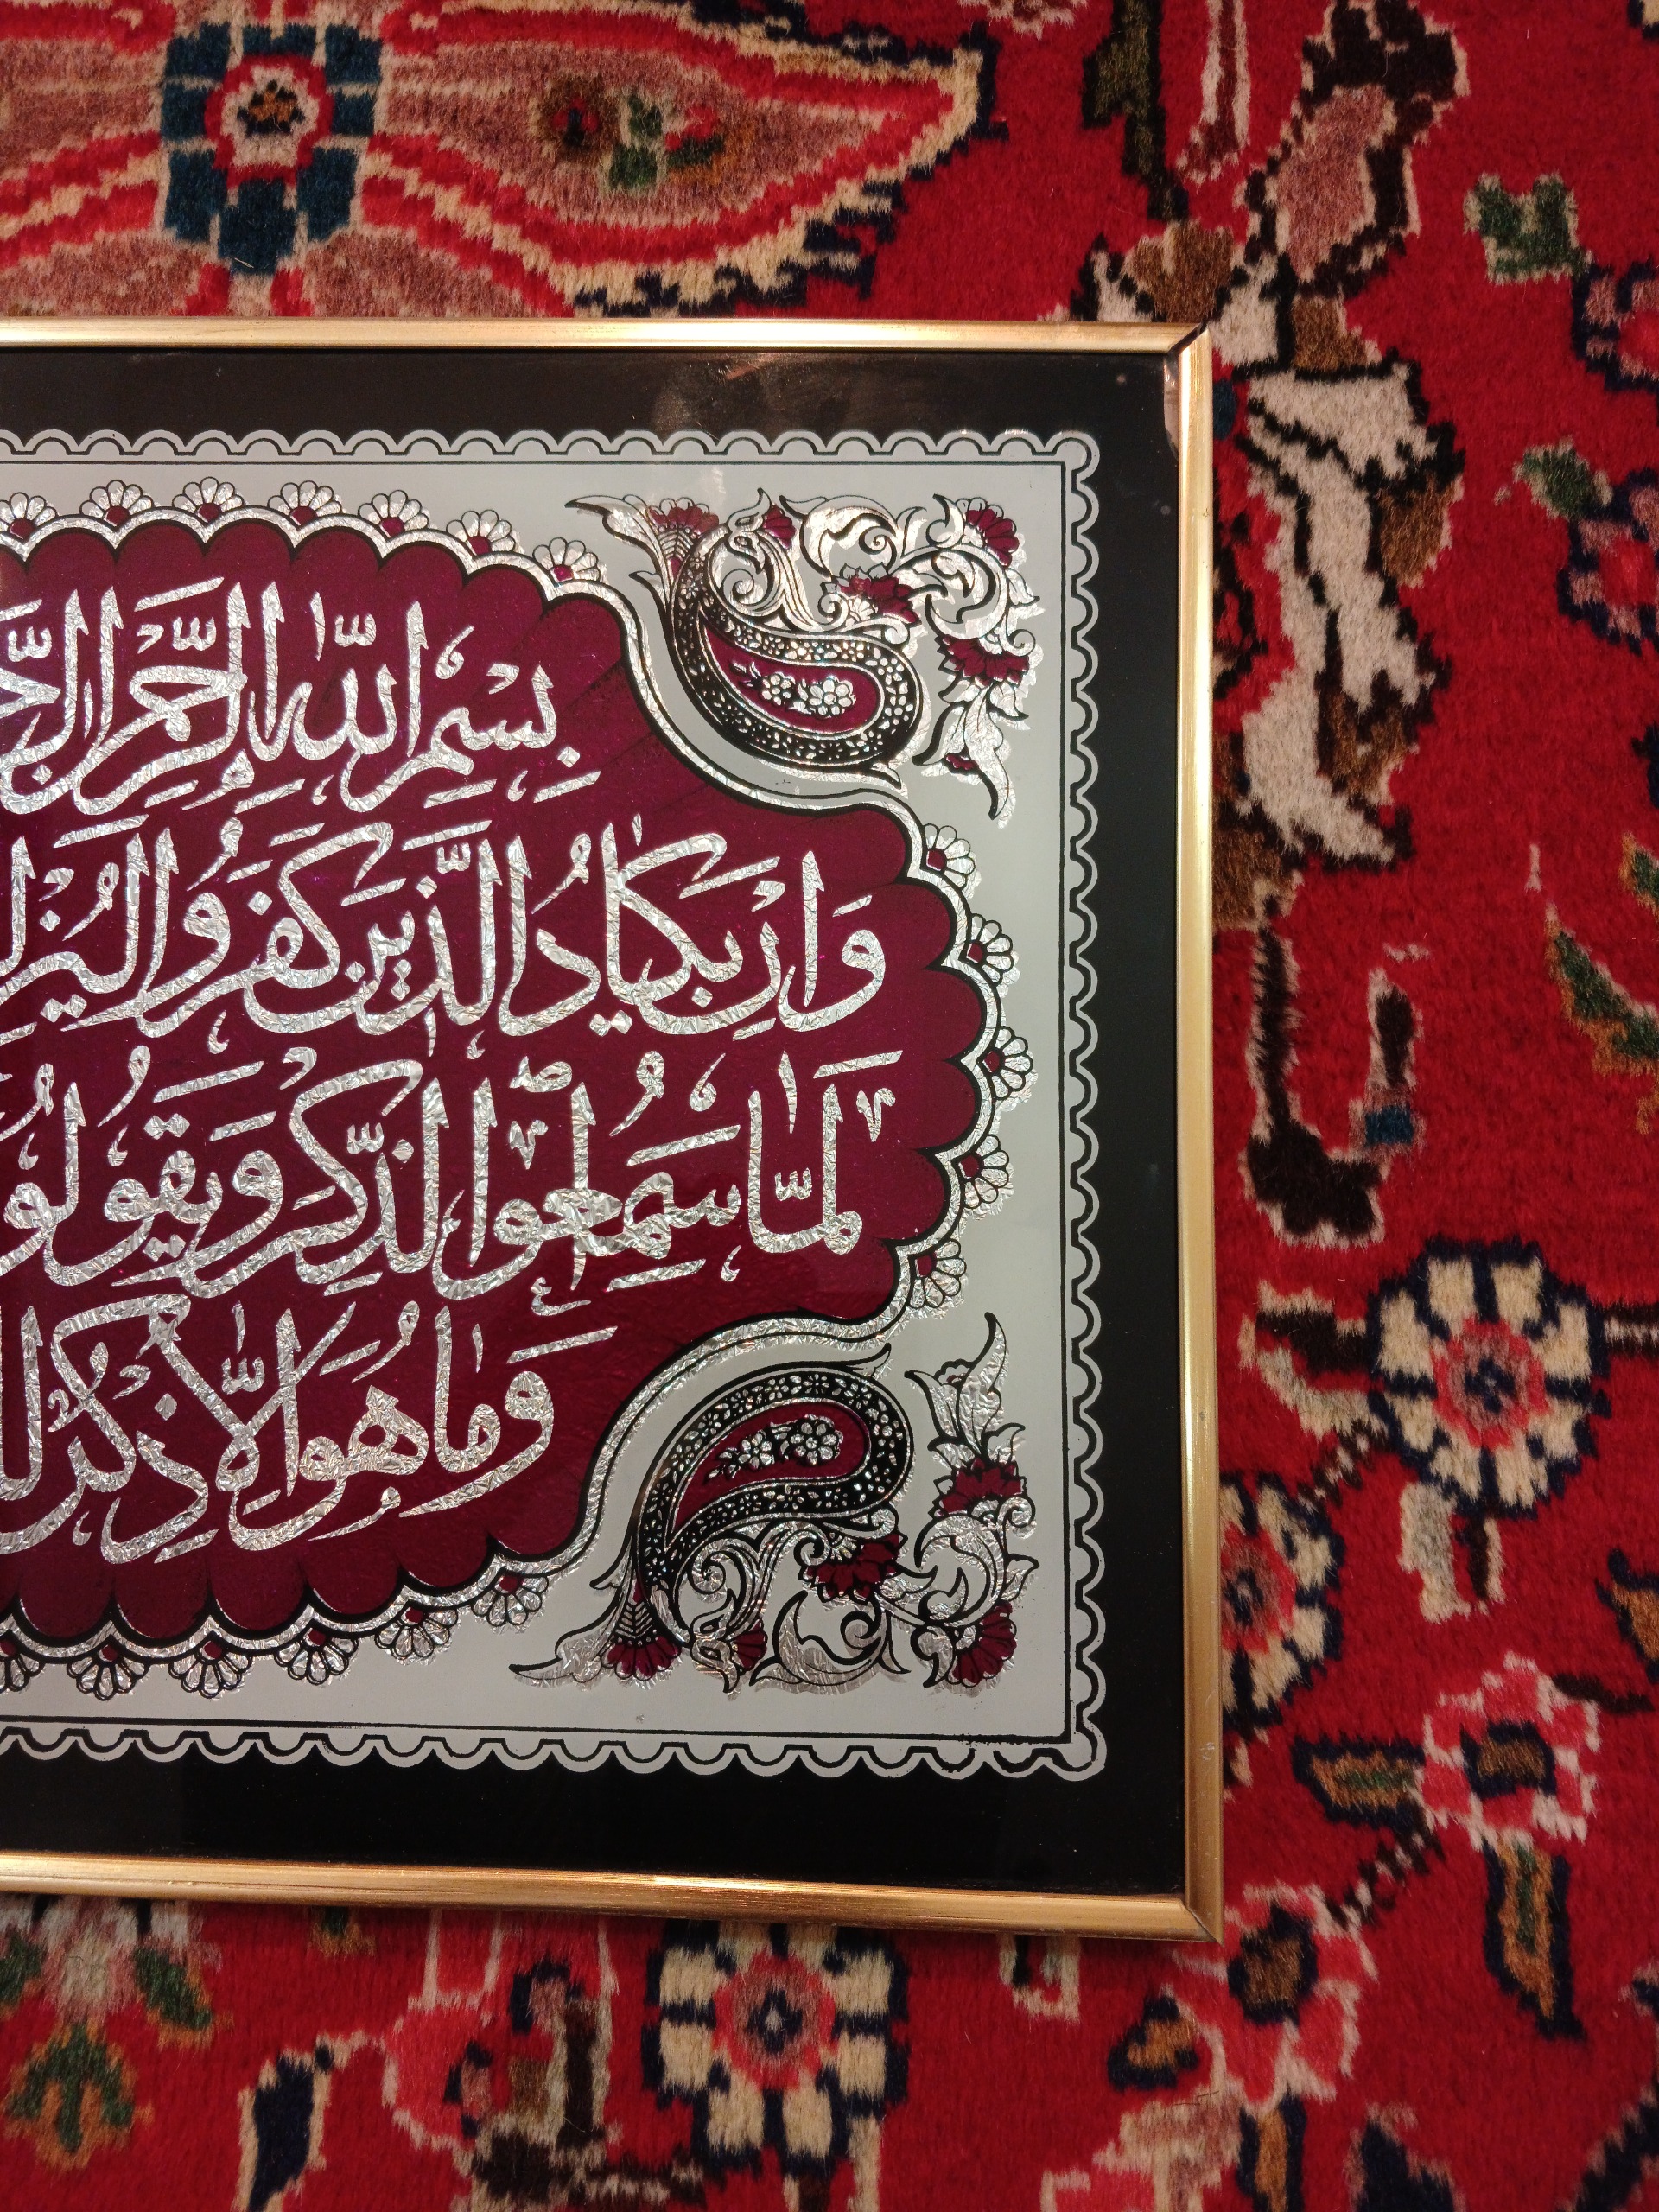 بِسْمِ اللّٰهِ الرَّحْمٰنِ
وَاِنْ يَكَادُ الَّذينَ كَفَرُوا
لَمَّا سَمِعُوا الذِّكْرَ وَيَقُولُو
وَمٰا هُوَ اِلَّا ذِكْرٌ